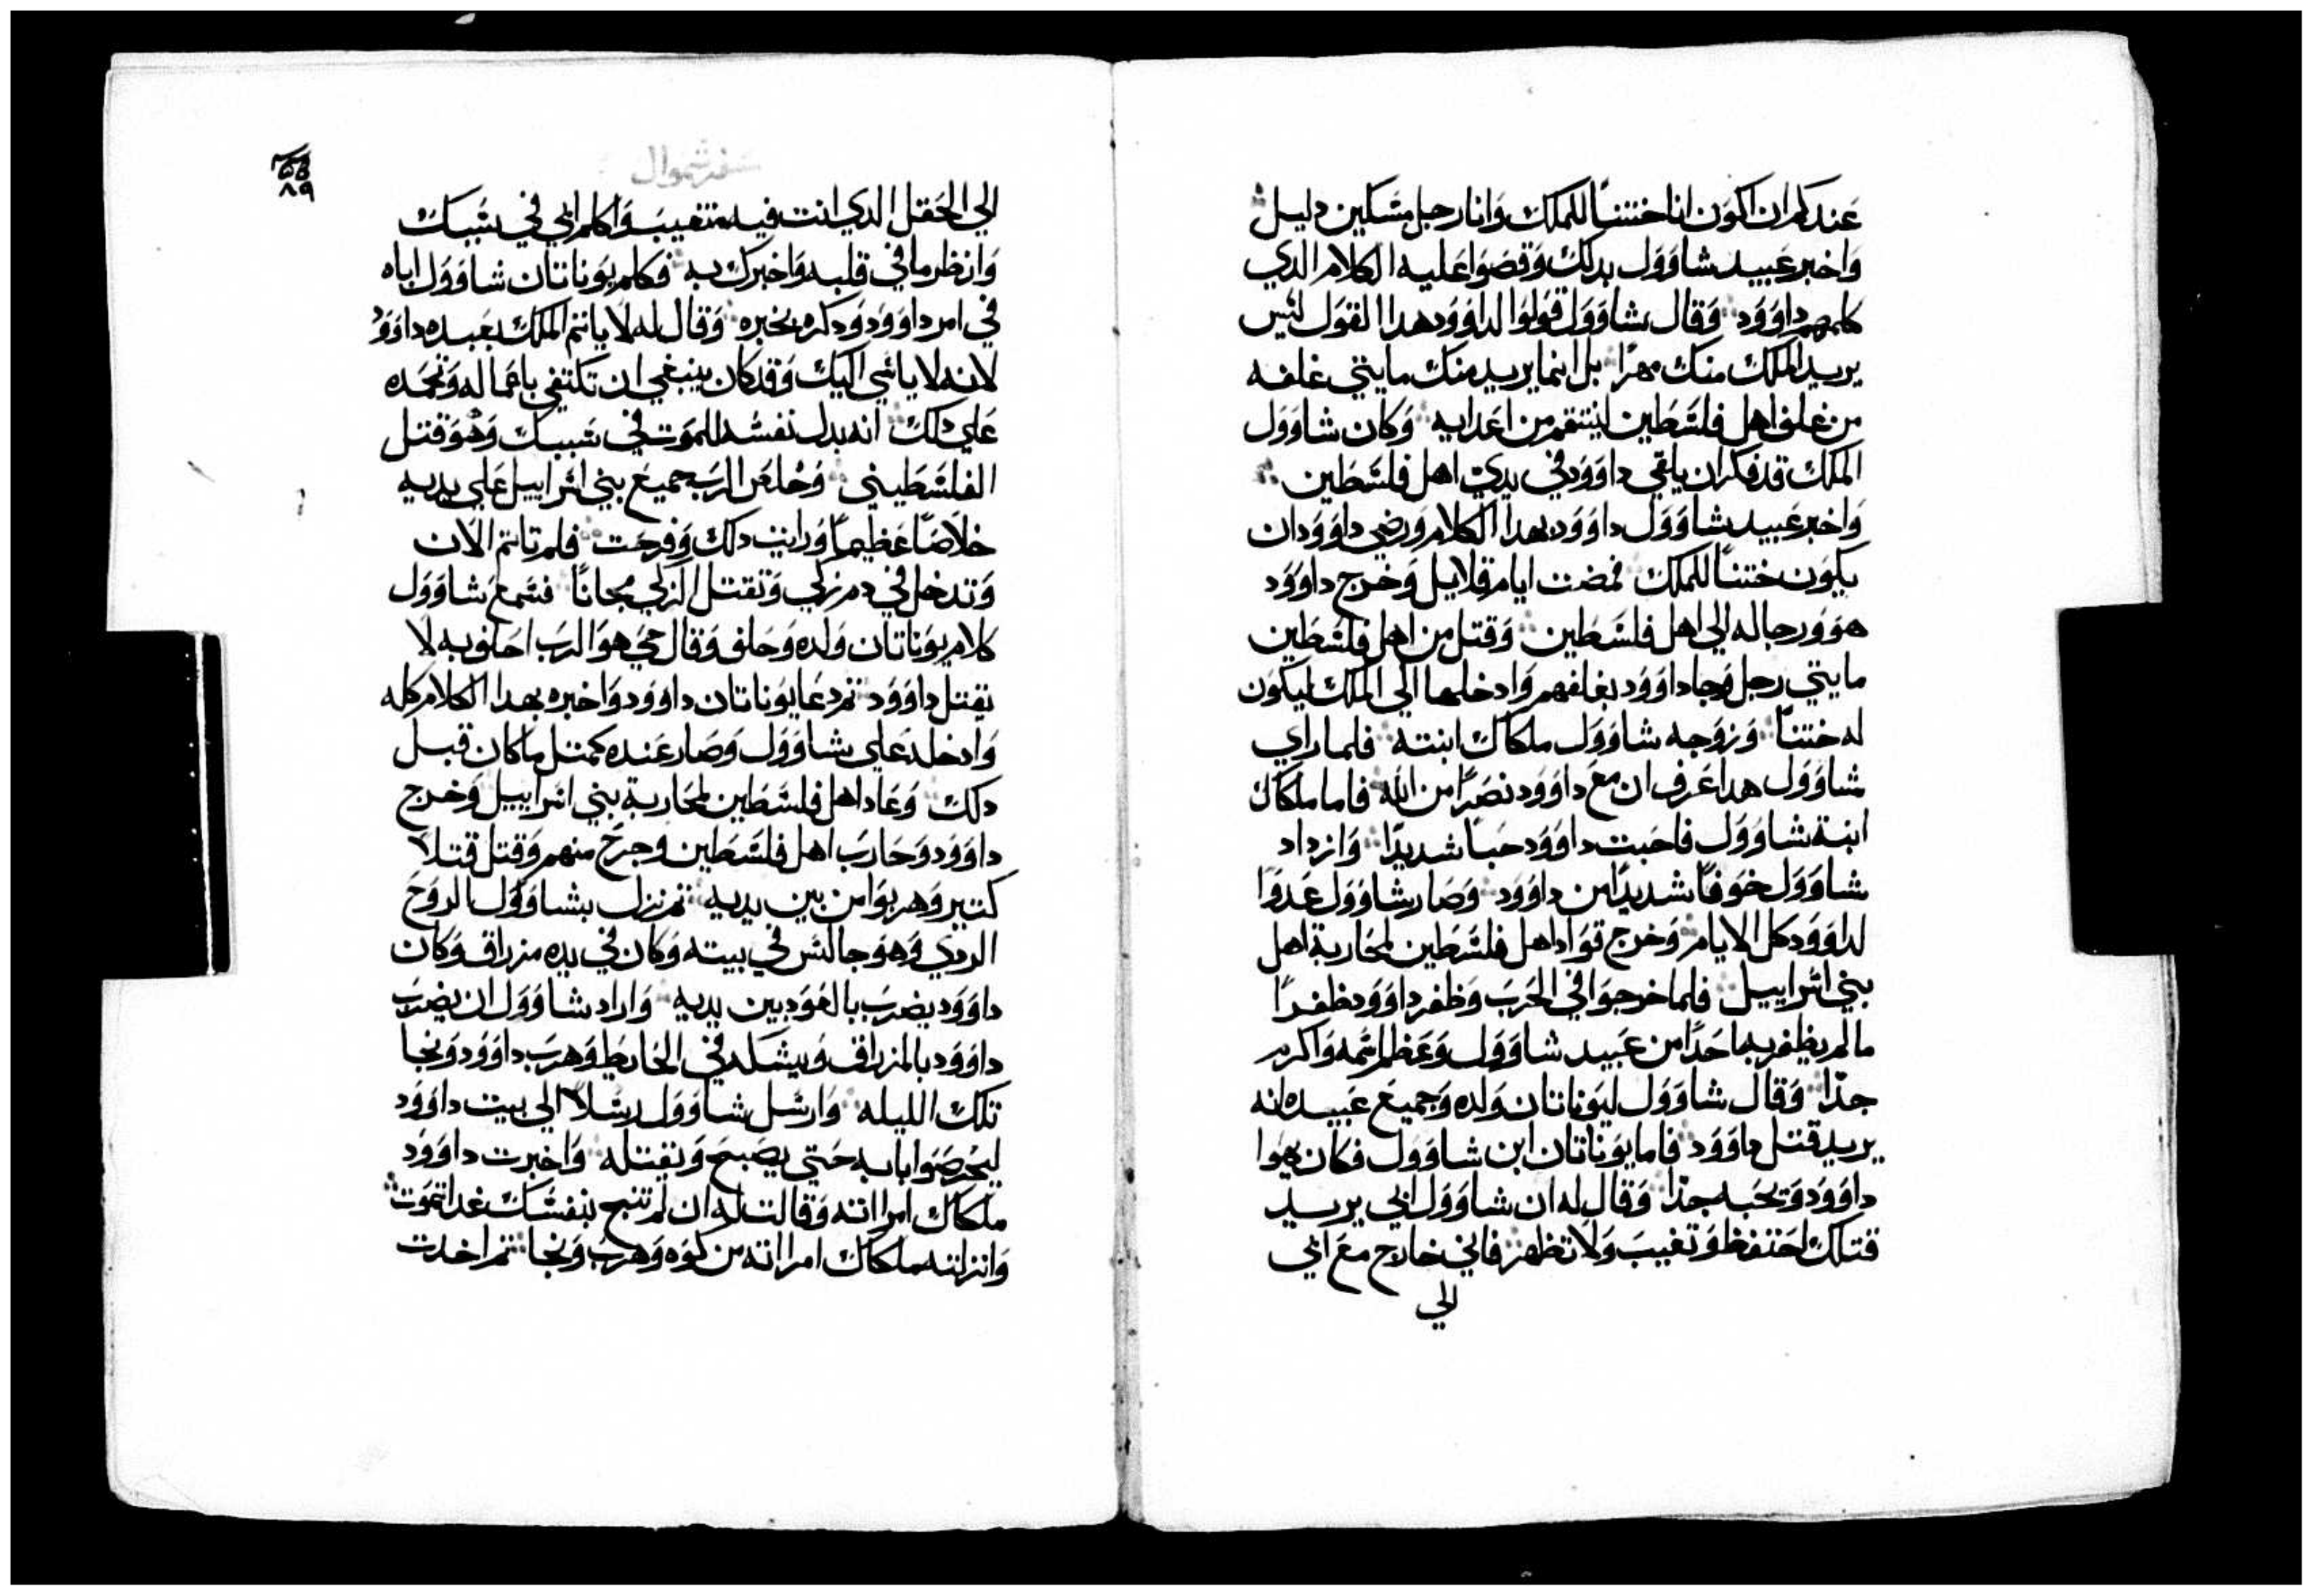 عندكم ان اكون انا ختنًا للملك وانا رجل مسكين دليل
واخبر عبيد شاوول بدلك وقصوا عليه الكلام الدي
كلمهم داوود وقال شاوول قولوا لداوود هدا القول ليس
يريد الملك منك مهرًا بل انما يريد منك مايتي غلفه
من غلف اهل فلسطين لينتقم من اعدايه وكان شاوول
الملك قد فكر ان يلقي داوود في يدي اهل فلسطين
واخبر عبيد شاوول داوود بهدا الكلام ورضي داوود ان
يكون ختنًا للملك فمضت ايام قلايل وخرج داوود
هو ورجاله الي اهل فلسطين وقتل من اهل فلسطين
مايتي رجل وجا داوود بغلفهم وادخلها الي الملك ليكون
له ختنًا وزوجه شاوول ملكال ابنته فلما راي
شاوول هدا عرف ان مع داوود نصرًا من الله فاما ملكال
ابنة شاوول فاحبت داوود حبًا شديدًا وازداد
شاوول خوفًا شديدًا من داوود وصار شاوول عدوا
لداوود كل الايام وخرج قواد اهل فلسطين لمحاربة اهل
بني اسراييل فلما خرجوا في الحرب وظفر داوود ظفرًا
مالم يظفر به احدًا من عبيد شاوول وعظم اسمه واكرم
جدًا وقال شاوول ليوناتان ولده وجميع عبيده انه
يريد قتل داوود فاما يوناتان ابن شاوول فكان يهوا
داوود ويحبه جدًا وقال له ان شاوول ابي يريد
قتلك احتفظ وتغيب ولا تظهر فاني خارج مع ابي
الي
سفر شموال
٨٩
الي الحقل الدي انت فيه متغيب واكلم ابي في سببك
وانظر ما في قلبه واخبرك به فكلم يوناتان شاوول اباه
في امر داوود ودكره بخبره وقال له لا ياتم الملك بعبده داوود
لانه لا ياسي اليك وقد كان ينبغي ان تكتفي باعماله وتجده
علي دلك انه بدل نفسه للموت في سببك وهو قتل
الفلسطيني وخلص الرب جميع بني اسراييل علي يديه
خلاصًا عظيمًا ورايت دلك وفرحت فلم تاتم الان
وتدخل في دم زكي وتقتل الزكي مجانًا فسمع شاوول
كلام يوناتان ولده وحلف وقال حي هو الرب احلف به لا
نقتل داوود تم دعا يوناتان داوود واخبره بهدا الكلام كله
وادخله علي شاوول وصار عنده كمتل ما كان قبل
دلك وعاد اهل فلسطين لمحاربة بني اسراييل وخرج
داوود وحارب اهل فلسطين وجرح منهم وقتل قتلا
كتير وهربوا من بين يديه تم نزل بشاوول الروح
الردي وهو جالس في بيته وكان في يده مزراق وكان
داوود يضرب بالعود بين يديه واراد شاوول ان يضرب
داوود بالمزراق ويشكه في الحايط وهرب داوود ونجا
تلك الليله وارسل شاوول رسلًا الي بيت داوود
ليحرصوا بابه حتي يصبح ونقتله واخبرت داوود
ملكال امراته وقالت له ان لم تنج بنفسك غدا تموت
وانزلته ملكال امراته من كوه وهرب ونجا تم اخدت